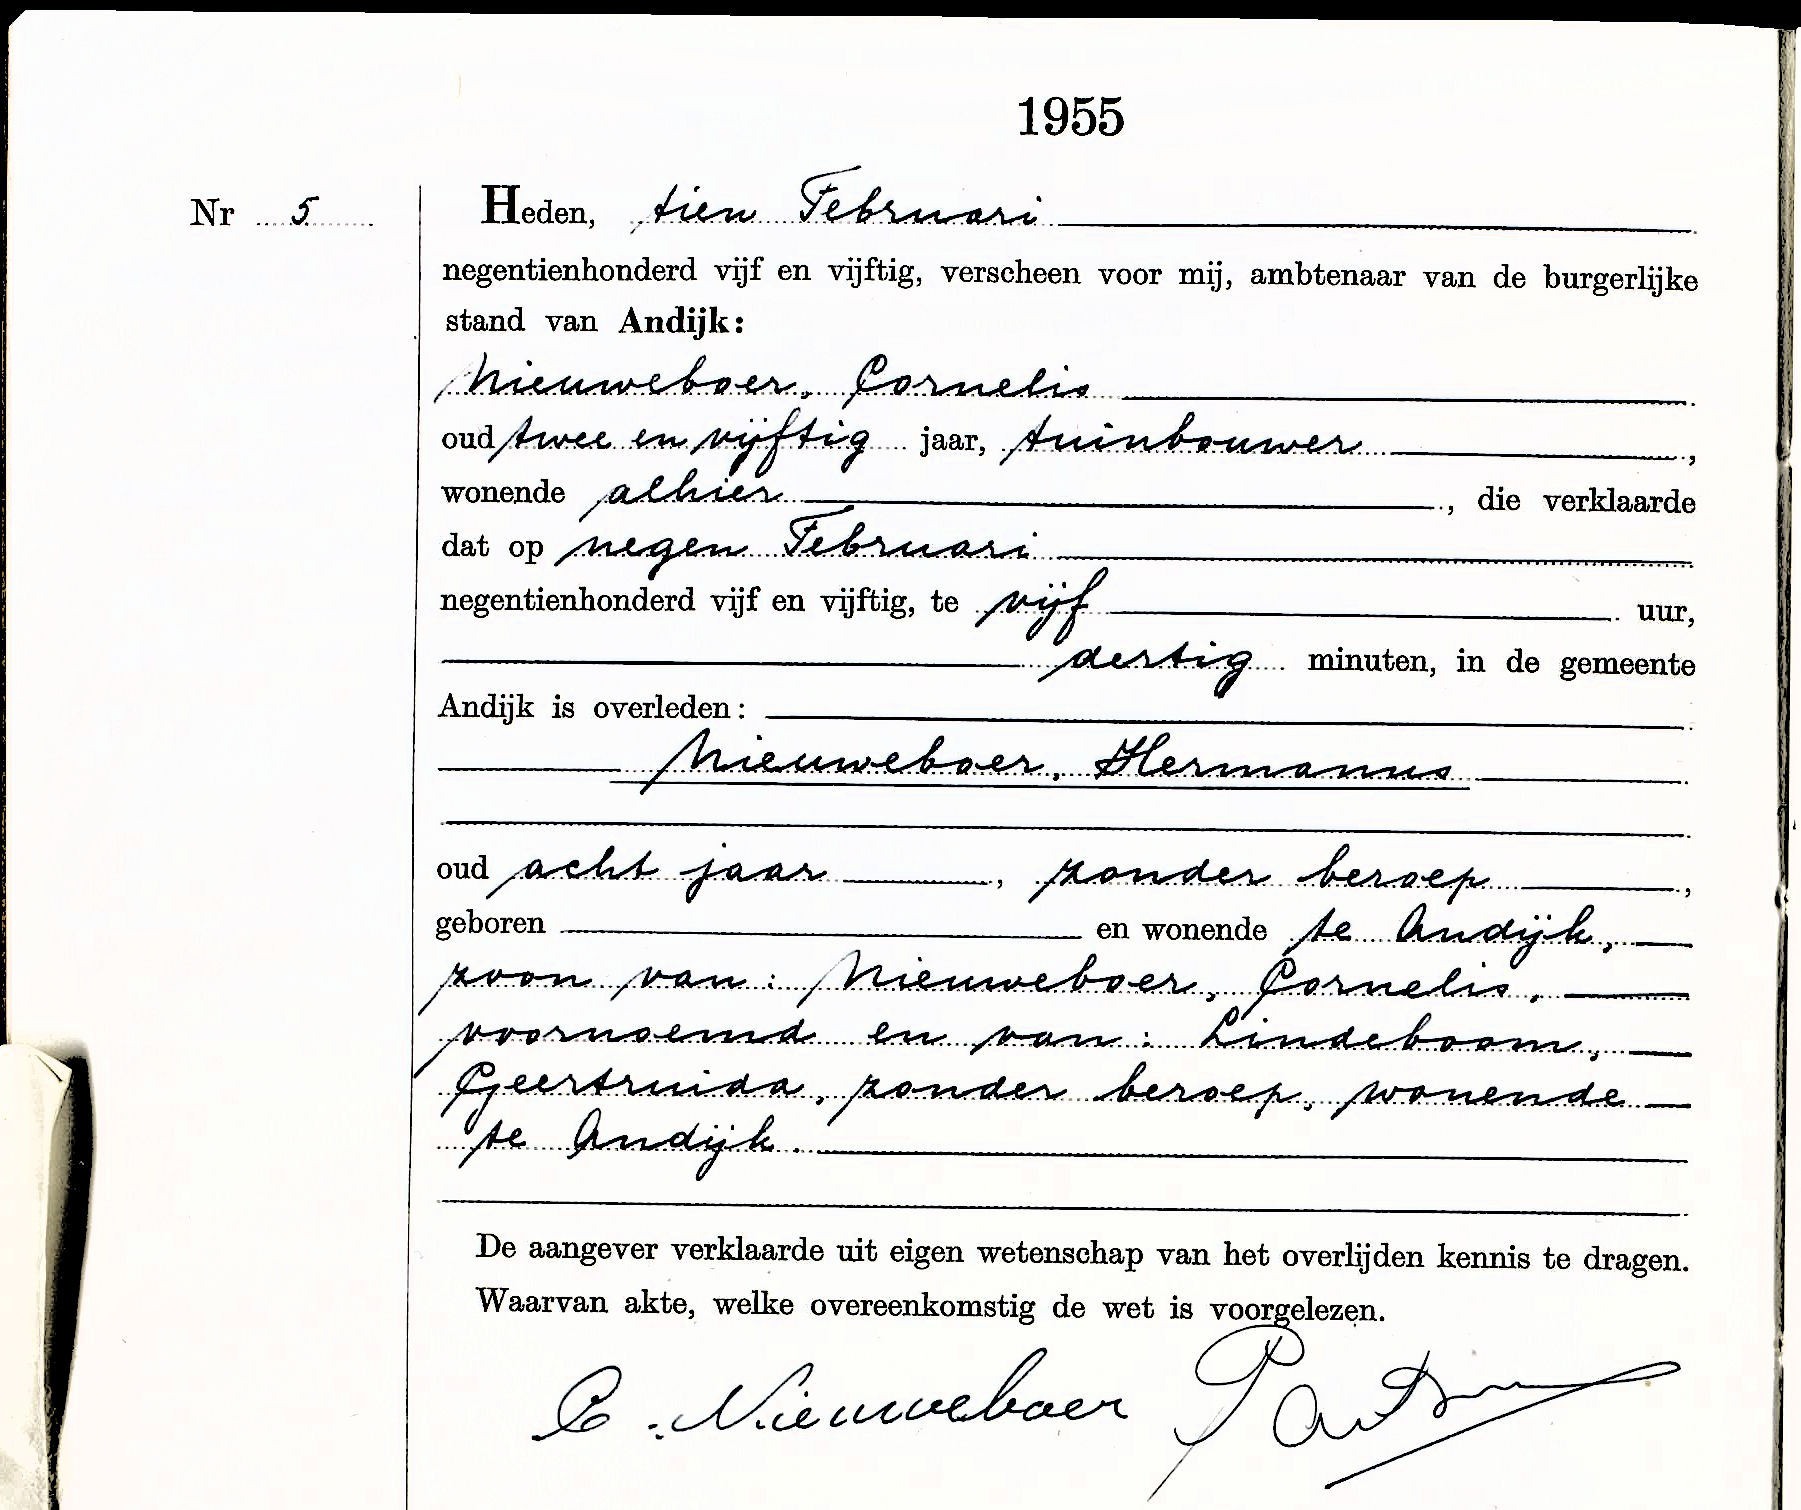 1955
Nr 5
Heden, tien Februari
negentienhonderd vijf en vijftig, verscheen voor mij, ambtenaar van de burgerlijke
stand van Andijk:
Nieuweboer, Cornelis
oud twee en vijftig jaar, tuinbouwer,
wonende alhier, die verklaarde
dat op negen Februari
negentienhonderd vijf en vijftig, te vijf uur,
dertig minuten, in de gemeente
Andijk is overleden:
Nieuweboer, Hermanus
oud acht jaar, zonder beroep,
geboren en wonende te Andijk,
zoon van: Nieuweboer, Cornelis,
voornoemd en van: Lindeboom,
Geertruida, zonder beroep, wonende
te Andijk.
De aangever verklaarde uit eigen wetenschap van het overlijden kennis te dragen.
Waarvan akte, welke overeenkomstig de wet is voorgelezen.
C. Nieuweboer